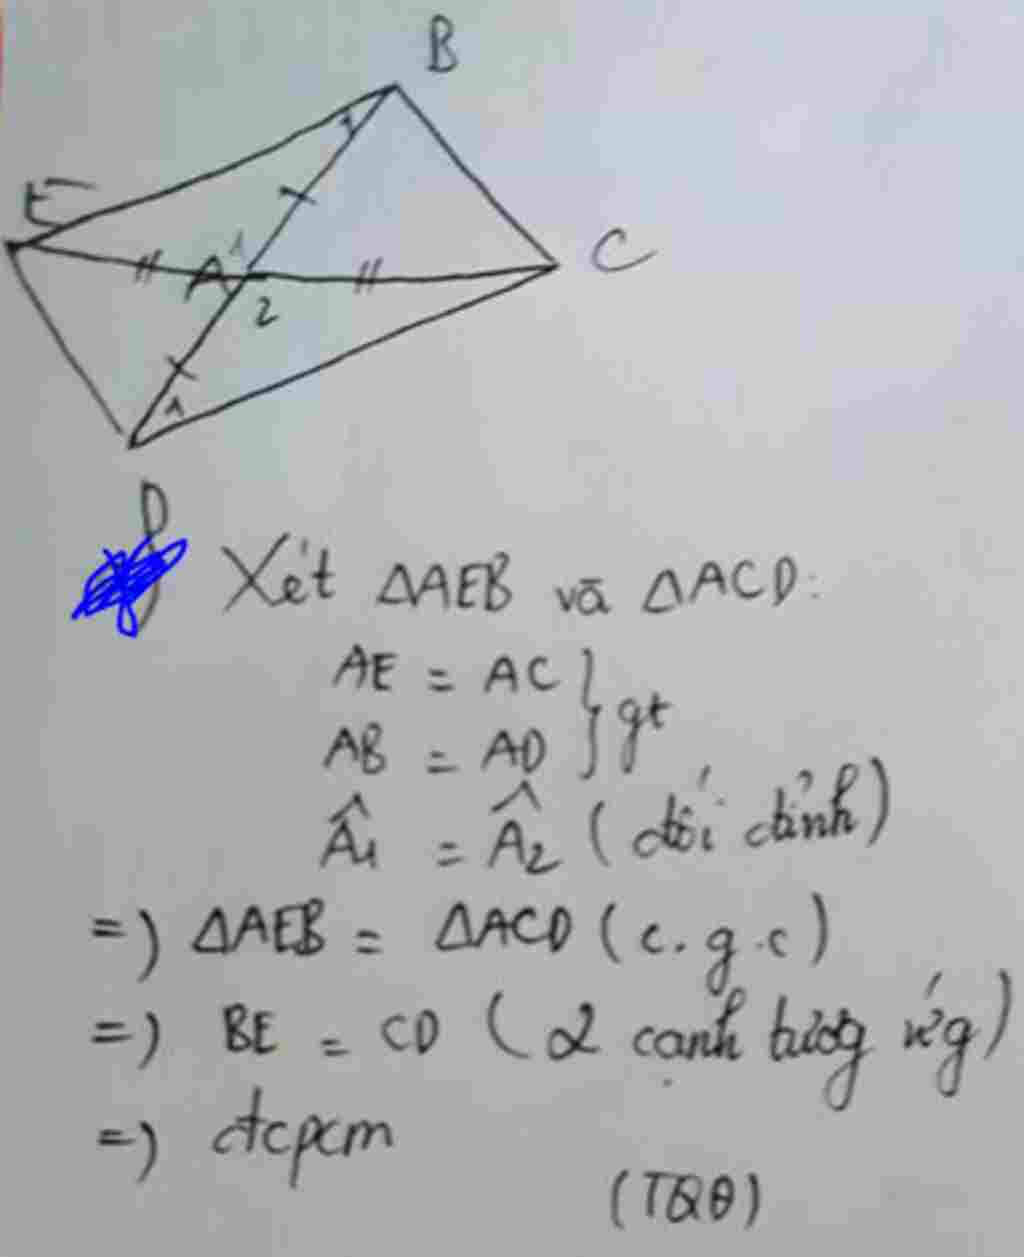 B
1
E
A 1
C
2
1
D
Xét ΔAEB và ΔACD:
AE = AC } gt
AB = AD
Â1 = Â2 (đối đỉnh)
=) ΔAEB = ΔACD (c.g.c)
=) BE = CD (2 cạnh tương ứg)
=) đcpcm
(TQĐ)